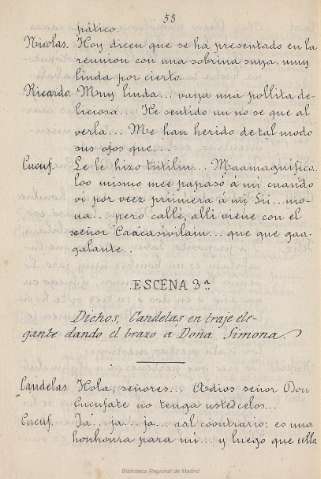 53
pático.
Nicolas. Hoy dicen que se ha presentado en la
reunion con una sobrina suya muy
linda por cierto
Ricardo. Muy linda... vaya una pollita de-
liciosa... He sentido un no se que al
verla... Me han herido de tal modo
sus ojos que...
Cucuf. Le le hizo titilin... Maamagnifico
loo mismo mee papaso á mi cuando
vi por vez primera á mi Si... mo-
na... pero calle, alli viene con el
señor Caacasivilain... que que gaa-
galante..
ESCENA 3ª
Dichos, Candelas en traje ele-
gante dando el brazo a Doña Simona.
Candelas Hola, señores... Adios señor Don
Cucufate no tenga usted celos...
Cucuf. Ja.. ja... ja... al coontrario; es una
honhonra para mi... y luego que ella
Biblioteca Regional de Madrid